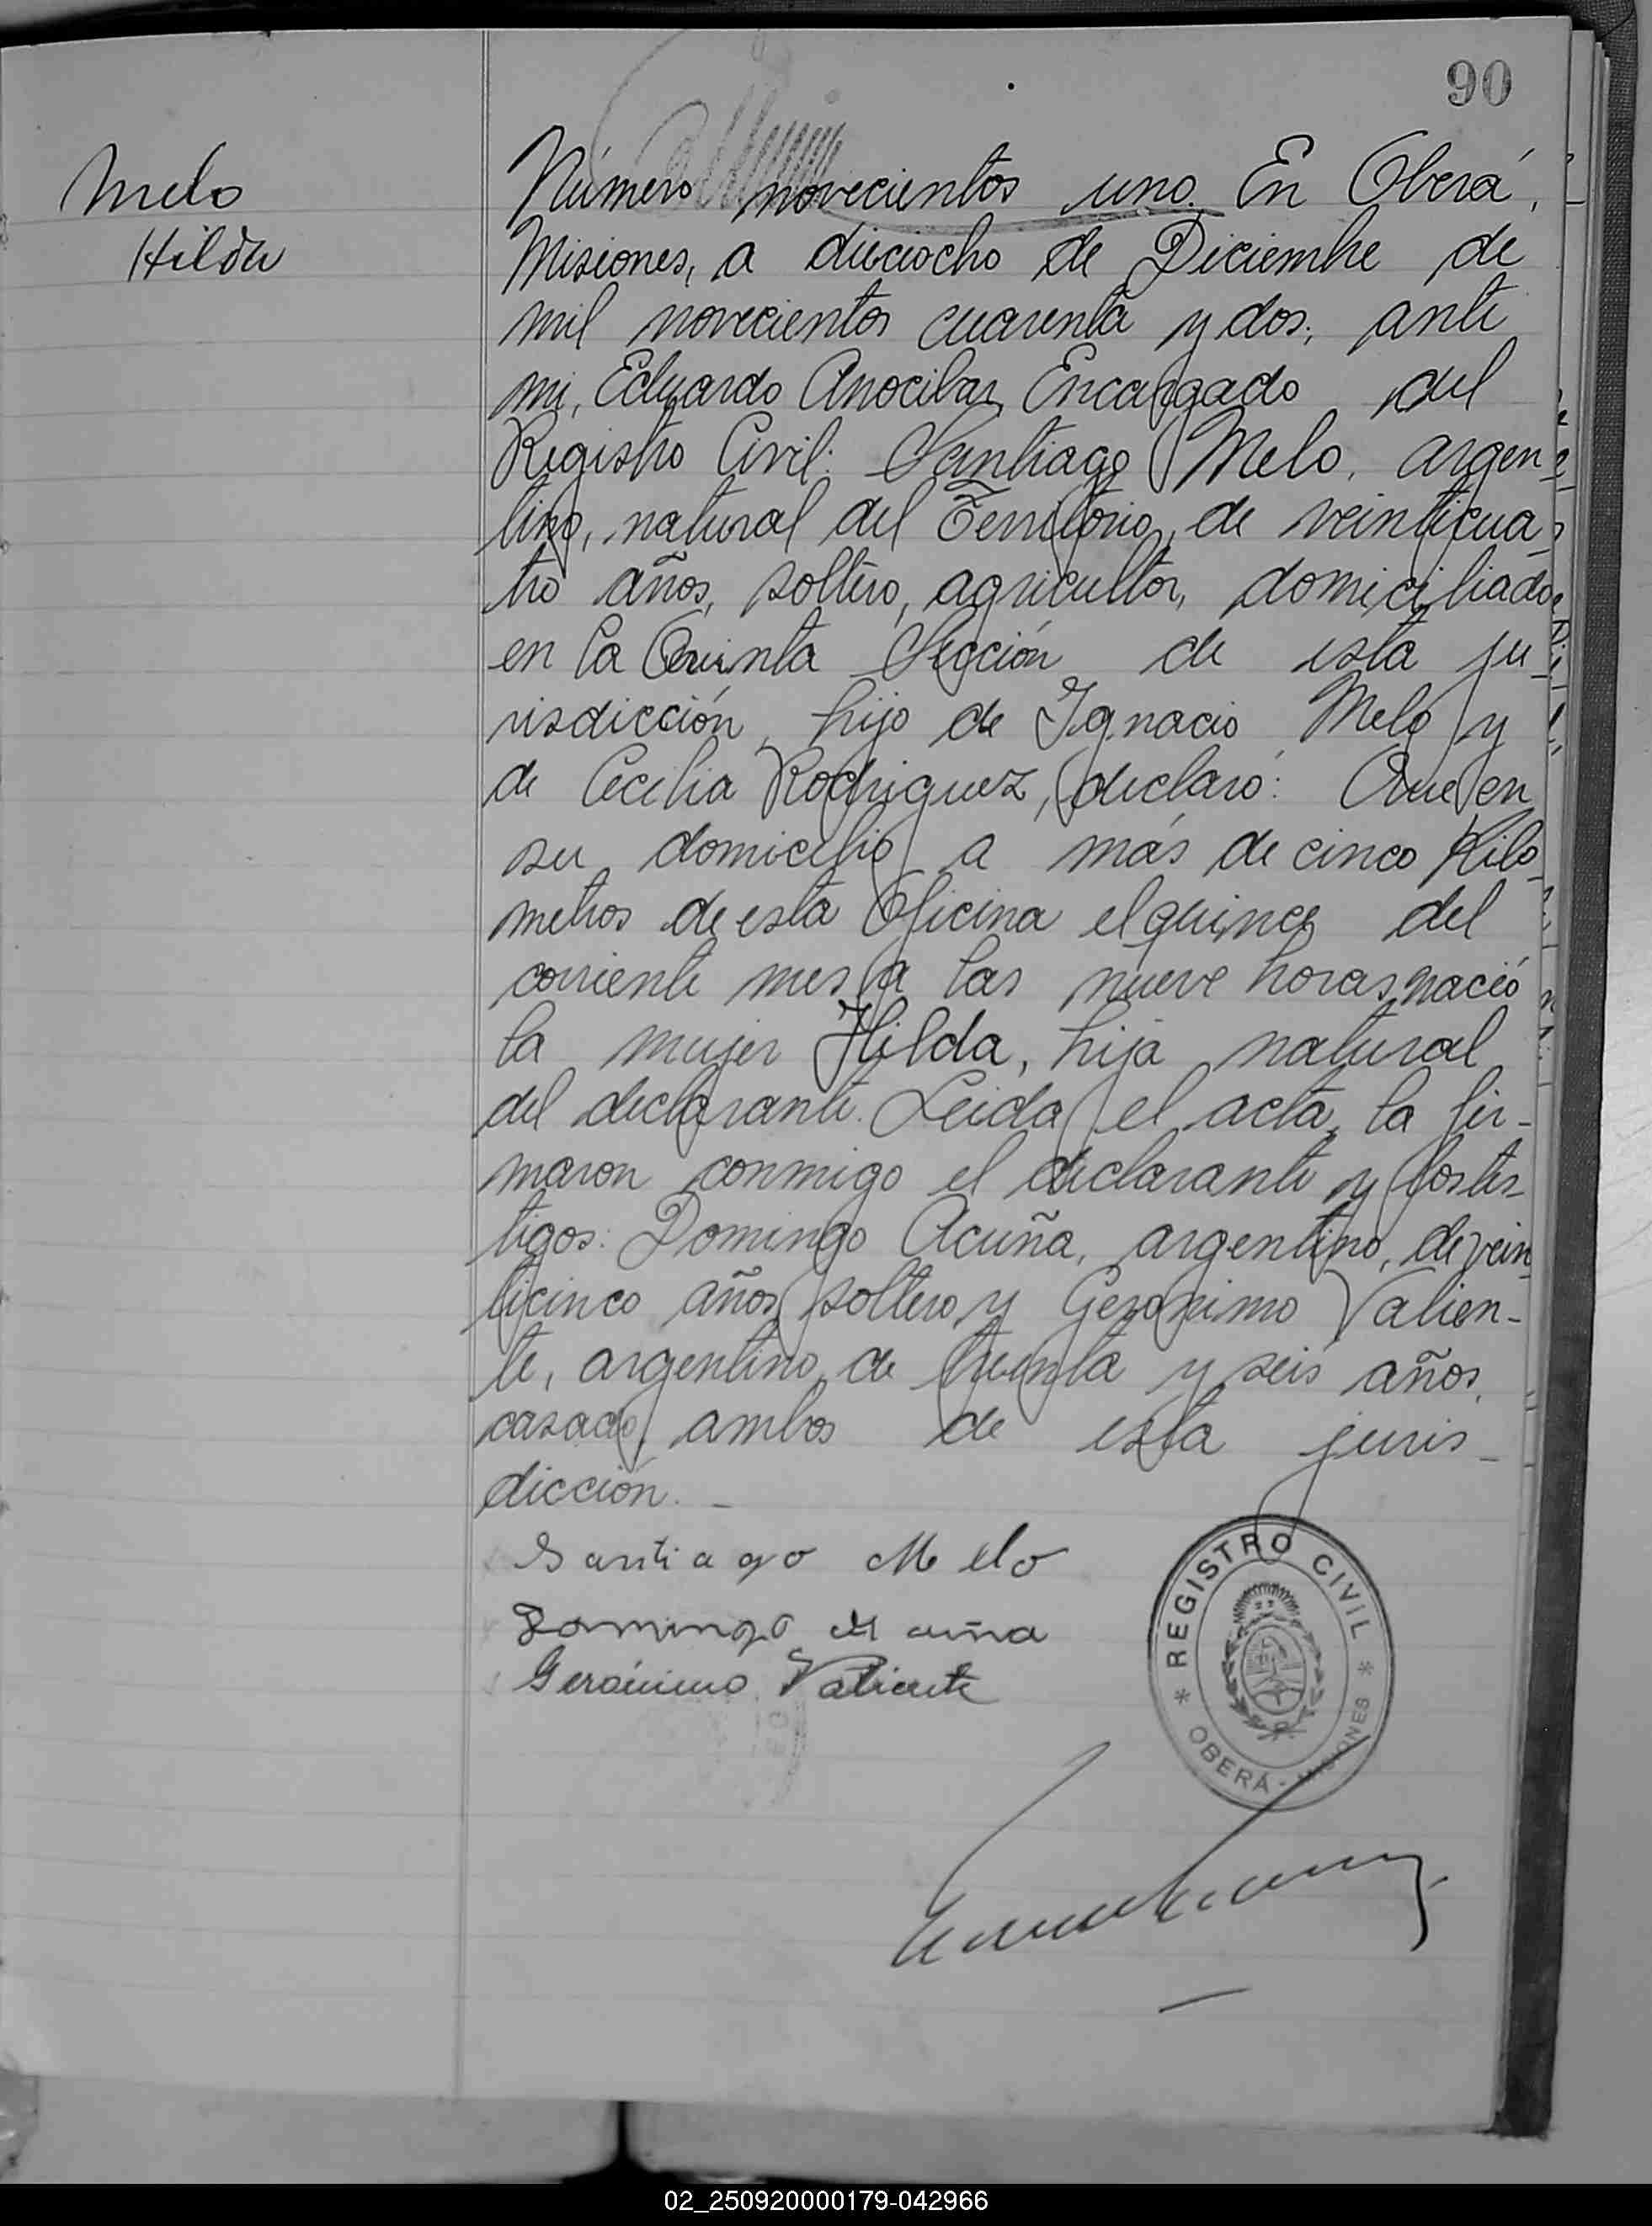 90
Melo
Hilda
Número novecientos uno. En Oberá,
Misiones, a dieciocho de Diciembre de
mil novecientos cuarenta y dos, ante
mi, Eduardo Anocibar, Encargado del
Registro Civil: Santiago Melo, argen-
tino, natural del Territorio, de veinticua-
tro años, soltero, agricultor, domiciliado
en la Quinta Sección de esta ju-
risdicción, hijo de Ignacio Melo y
de Cecilia Rodriguez, declaró: Que en
su domicilio a más de cinco Kiló-
metros de esta Oficina el quince del
corriente mes a las nueve horas, nació
la mujer Hilda, hija natural
del declarante. Leida el acta, la fir-
maron conmigo el declarante y los tes-
tigos: Domingo Acuña, argentino, de vein-
ticinco años, soltero y Geronimo Valien-
te, argentino, de treinta y seis años,
casado, ambos de esta juris-
dicción.-
Santiago Melo
Domingo Acuña
Gerónimo Valiente
REGISTRO CIVIL
* OBERÁ - MISIONES *
02_250920000179-042966